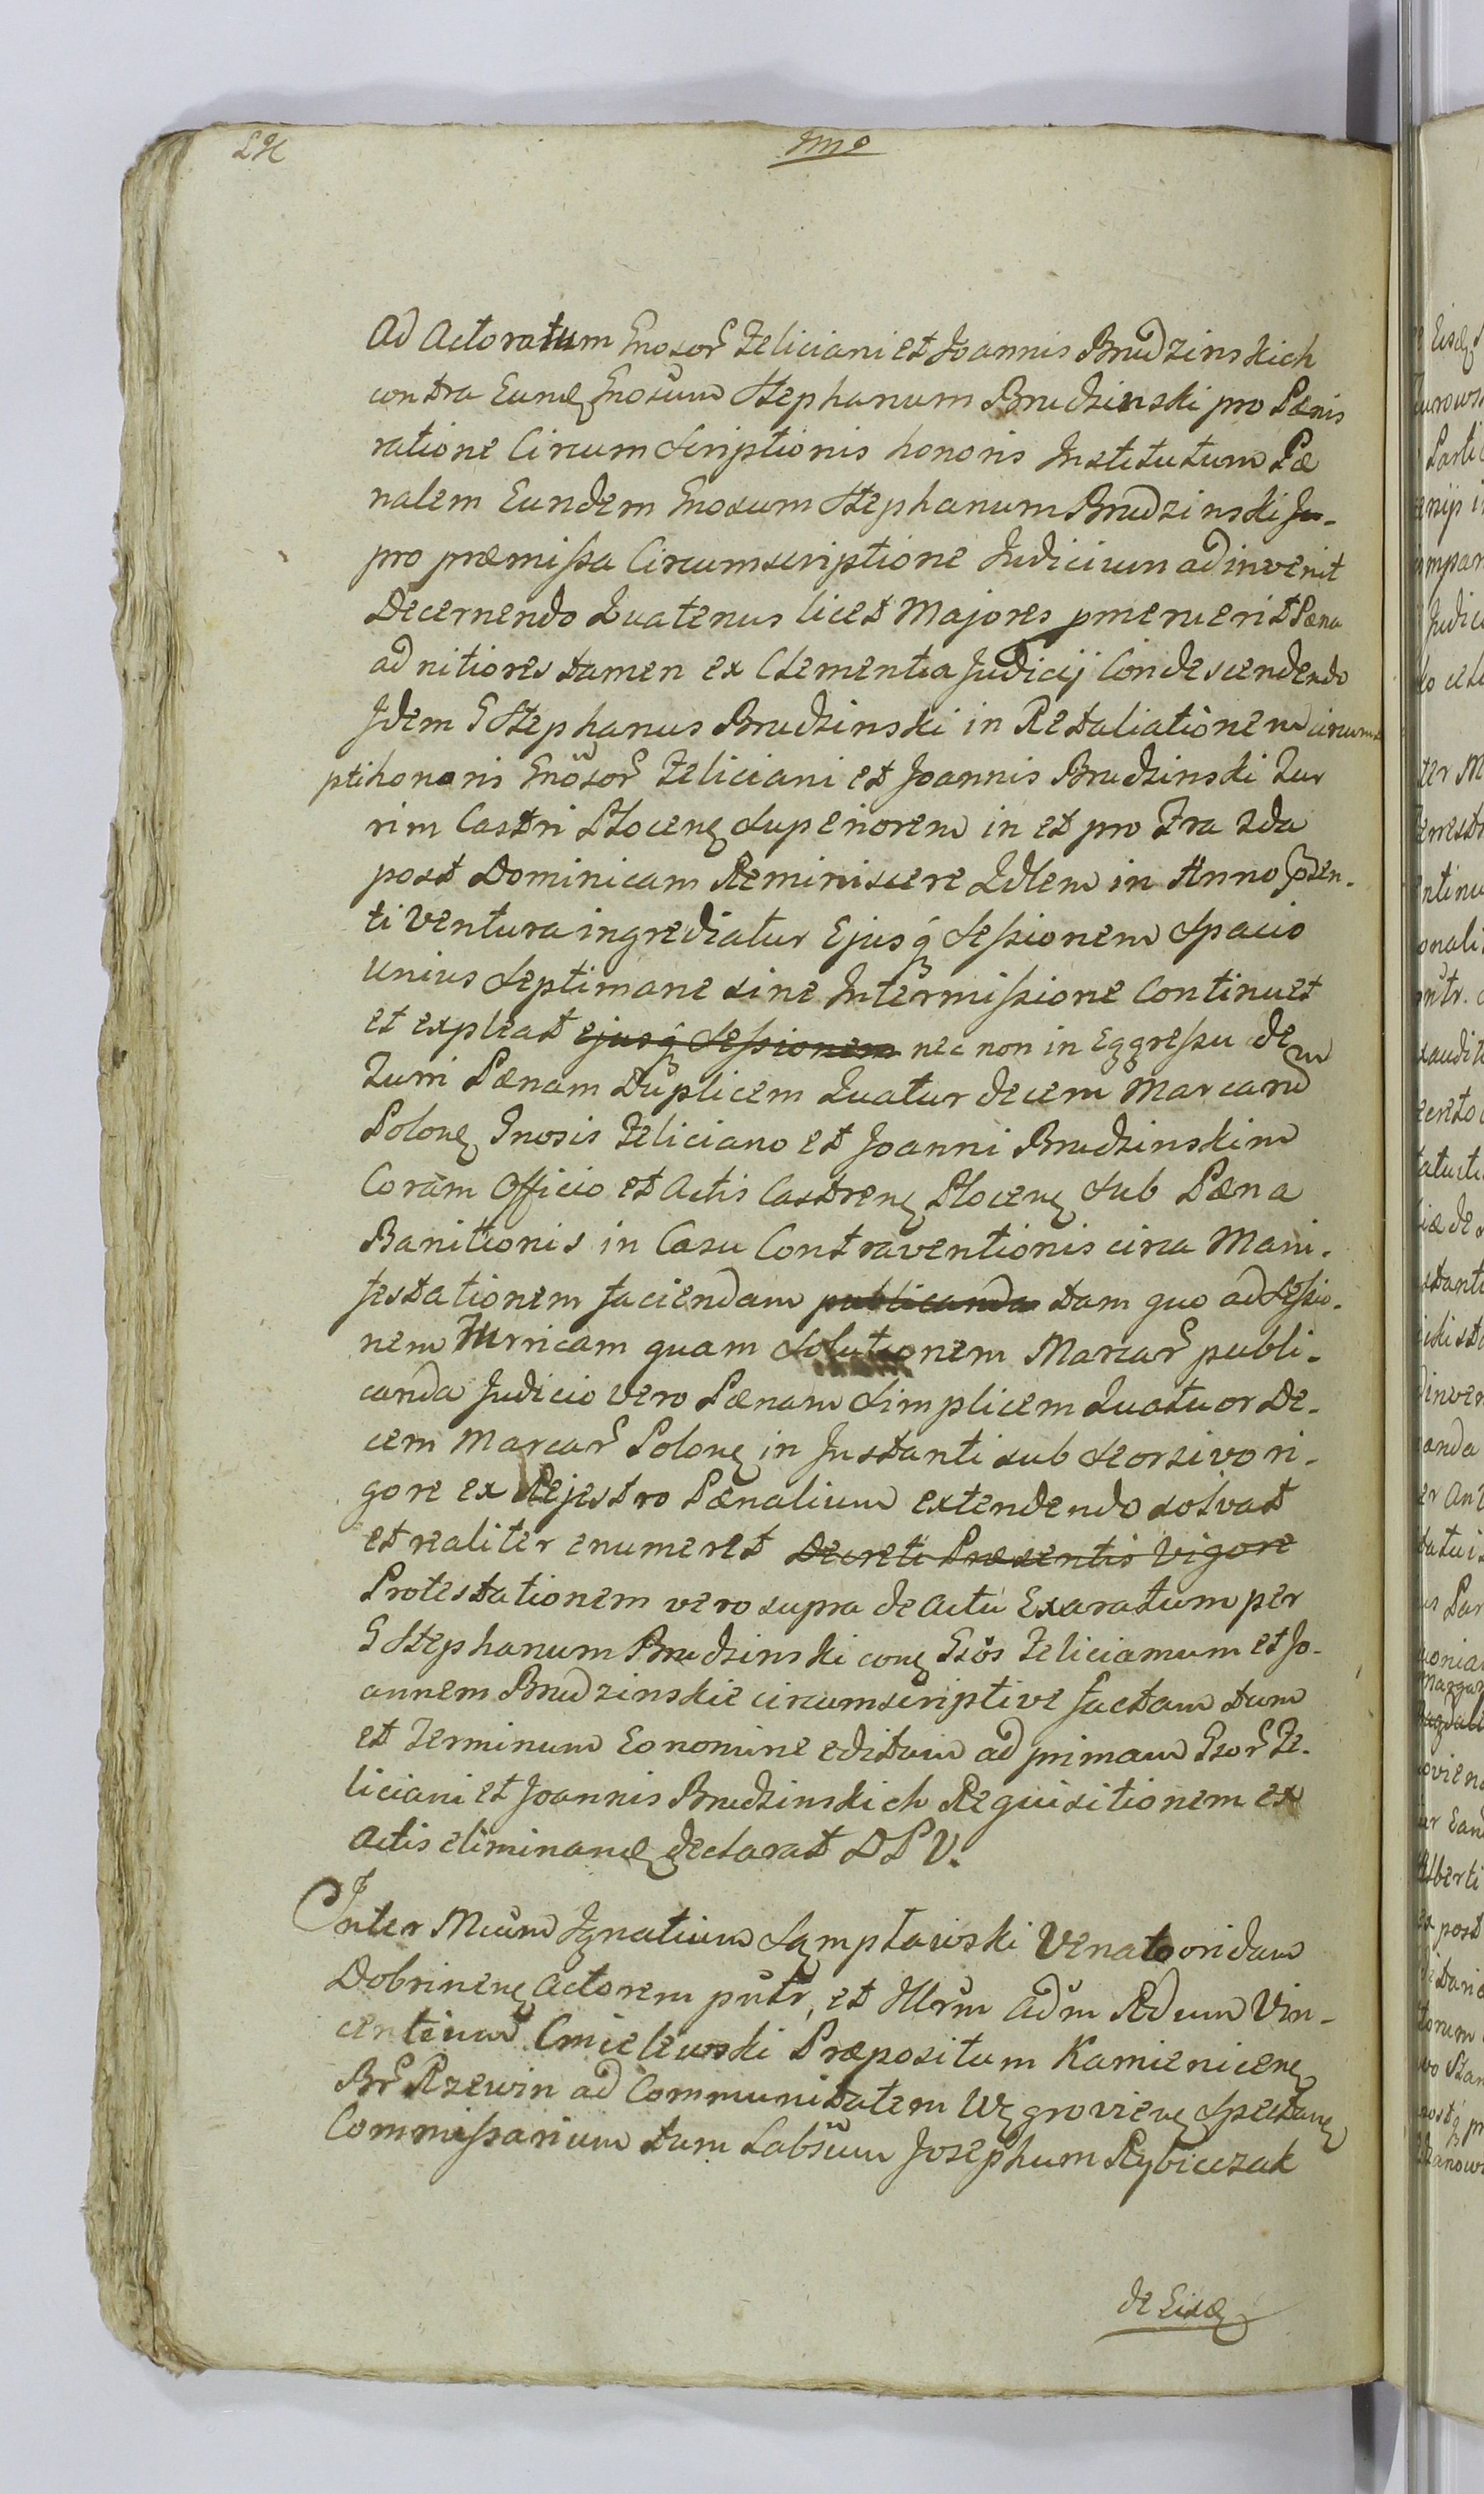 Ad Actoratum Gnosor Feliciani et Joannis Brudzinskich
contra Eund Gnosum Stephanum Brudzinski pro Pænis
ratione Circum Scriptionis honoris Institutum Pæ
nalem Eundem Gnosum Stephanum Brudzinski Ju-
pro præmissa Circumscriptione Judicium adinvenit
Decernendo Quatenus licet Majores pmeruerit Pæna
ad nitiores tamen ex Clementia Judicij Condescendendo
Idem G Stephanus Brudzinski in Retaliationem circums
pti honoris Gnosor Feliciani et Joannis Brudzinski Tur
rim Castri Plocens Superiorem in et pro Fra 2da
post Dominicam Reminiscere Qdlem in Anno psen-
ti Ventura ingrediatur Ejusq Sessionem Spacio
unius Septimane sine Intermissione Continuet
et expleat ejusq Sessionem nec non in Eggressu de
Turri Pænam Duplicem Quatur decem Marcarum
Polone Gnosis Feliciano et Joanni Brudzinskim
Coram Officio et Actis Castren Plocen Sub Pæna
Banitionis in Casu Contraventionis circa Mani-
festationem faciendam publicanda tam quo ad Sessio-
nem Turricam quam Solutionem Marcar publi-
canda Judicio vero Pænam Simplicem Quatuor De-
cem Marcar Polone in Instanti sub Seorsivo ri-
gore ex Rejestro Pænalium extendendo solvat
et realiter enumeret Decreti Præsentis Vigore
Protestationem vero supra de actu Exaratum per
G Stephanum Brudzinski con Gsos Feliciamum et Jo-
annem Brudzinskie circumscriptive factam tum
et Terminum Eo nomine editum ad primam Gsor Fe-
liciani et Joannis Brudzinskich Requisitionem ex
Actis eliminand declarat D P V.
Inter Mcum Ignatium Sąmpławski Venatoridam
Dobrinen Actorem pntr, et Illrm Adm Rdum Vin-
centium Cmielewski Præpositum Kamienicen
Br Rzewin ad Communitatem Węgrovien Spectan
Commissarium tum Labsum Josephum Rybiczak
de Eisd